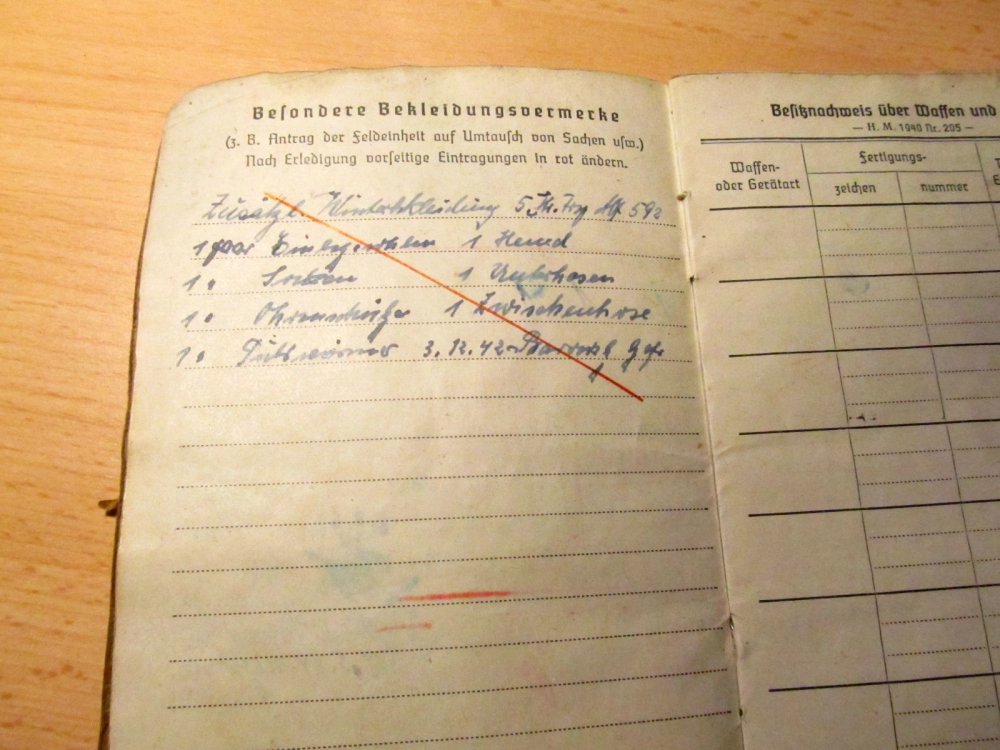 Besondere Bekleidungsvermerke
(z. B. Antrag der Feldeinheit auf Umtausch von Sachen usw.)
Nach Erledigung vorseitige Eintragungen in rot ändern.
Zusätzl. Winterbekleidung 5
1 paar Einlegesohlen 1 Hemd
1 " Socken 1 Unterhosen
1 " Ohrenschützer 1 Zwischenhose
1 " Pulswärmer 3.12.42 Gefr
Besitznachweis über Waffen und
— H. M. 1940 Nr. 205 —
Waffen-
oder Gerätart
Fertigungs-
zeichen
nummer